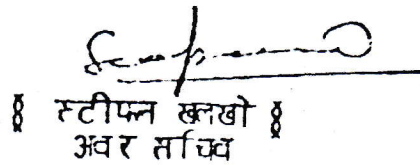 § स्टीफन खलखो §
अवर सचिव